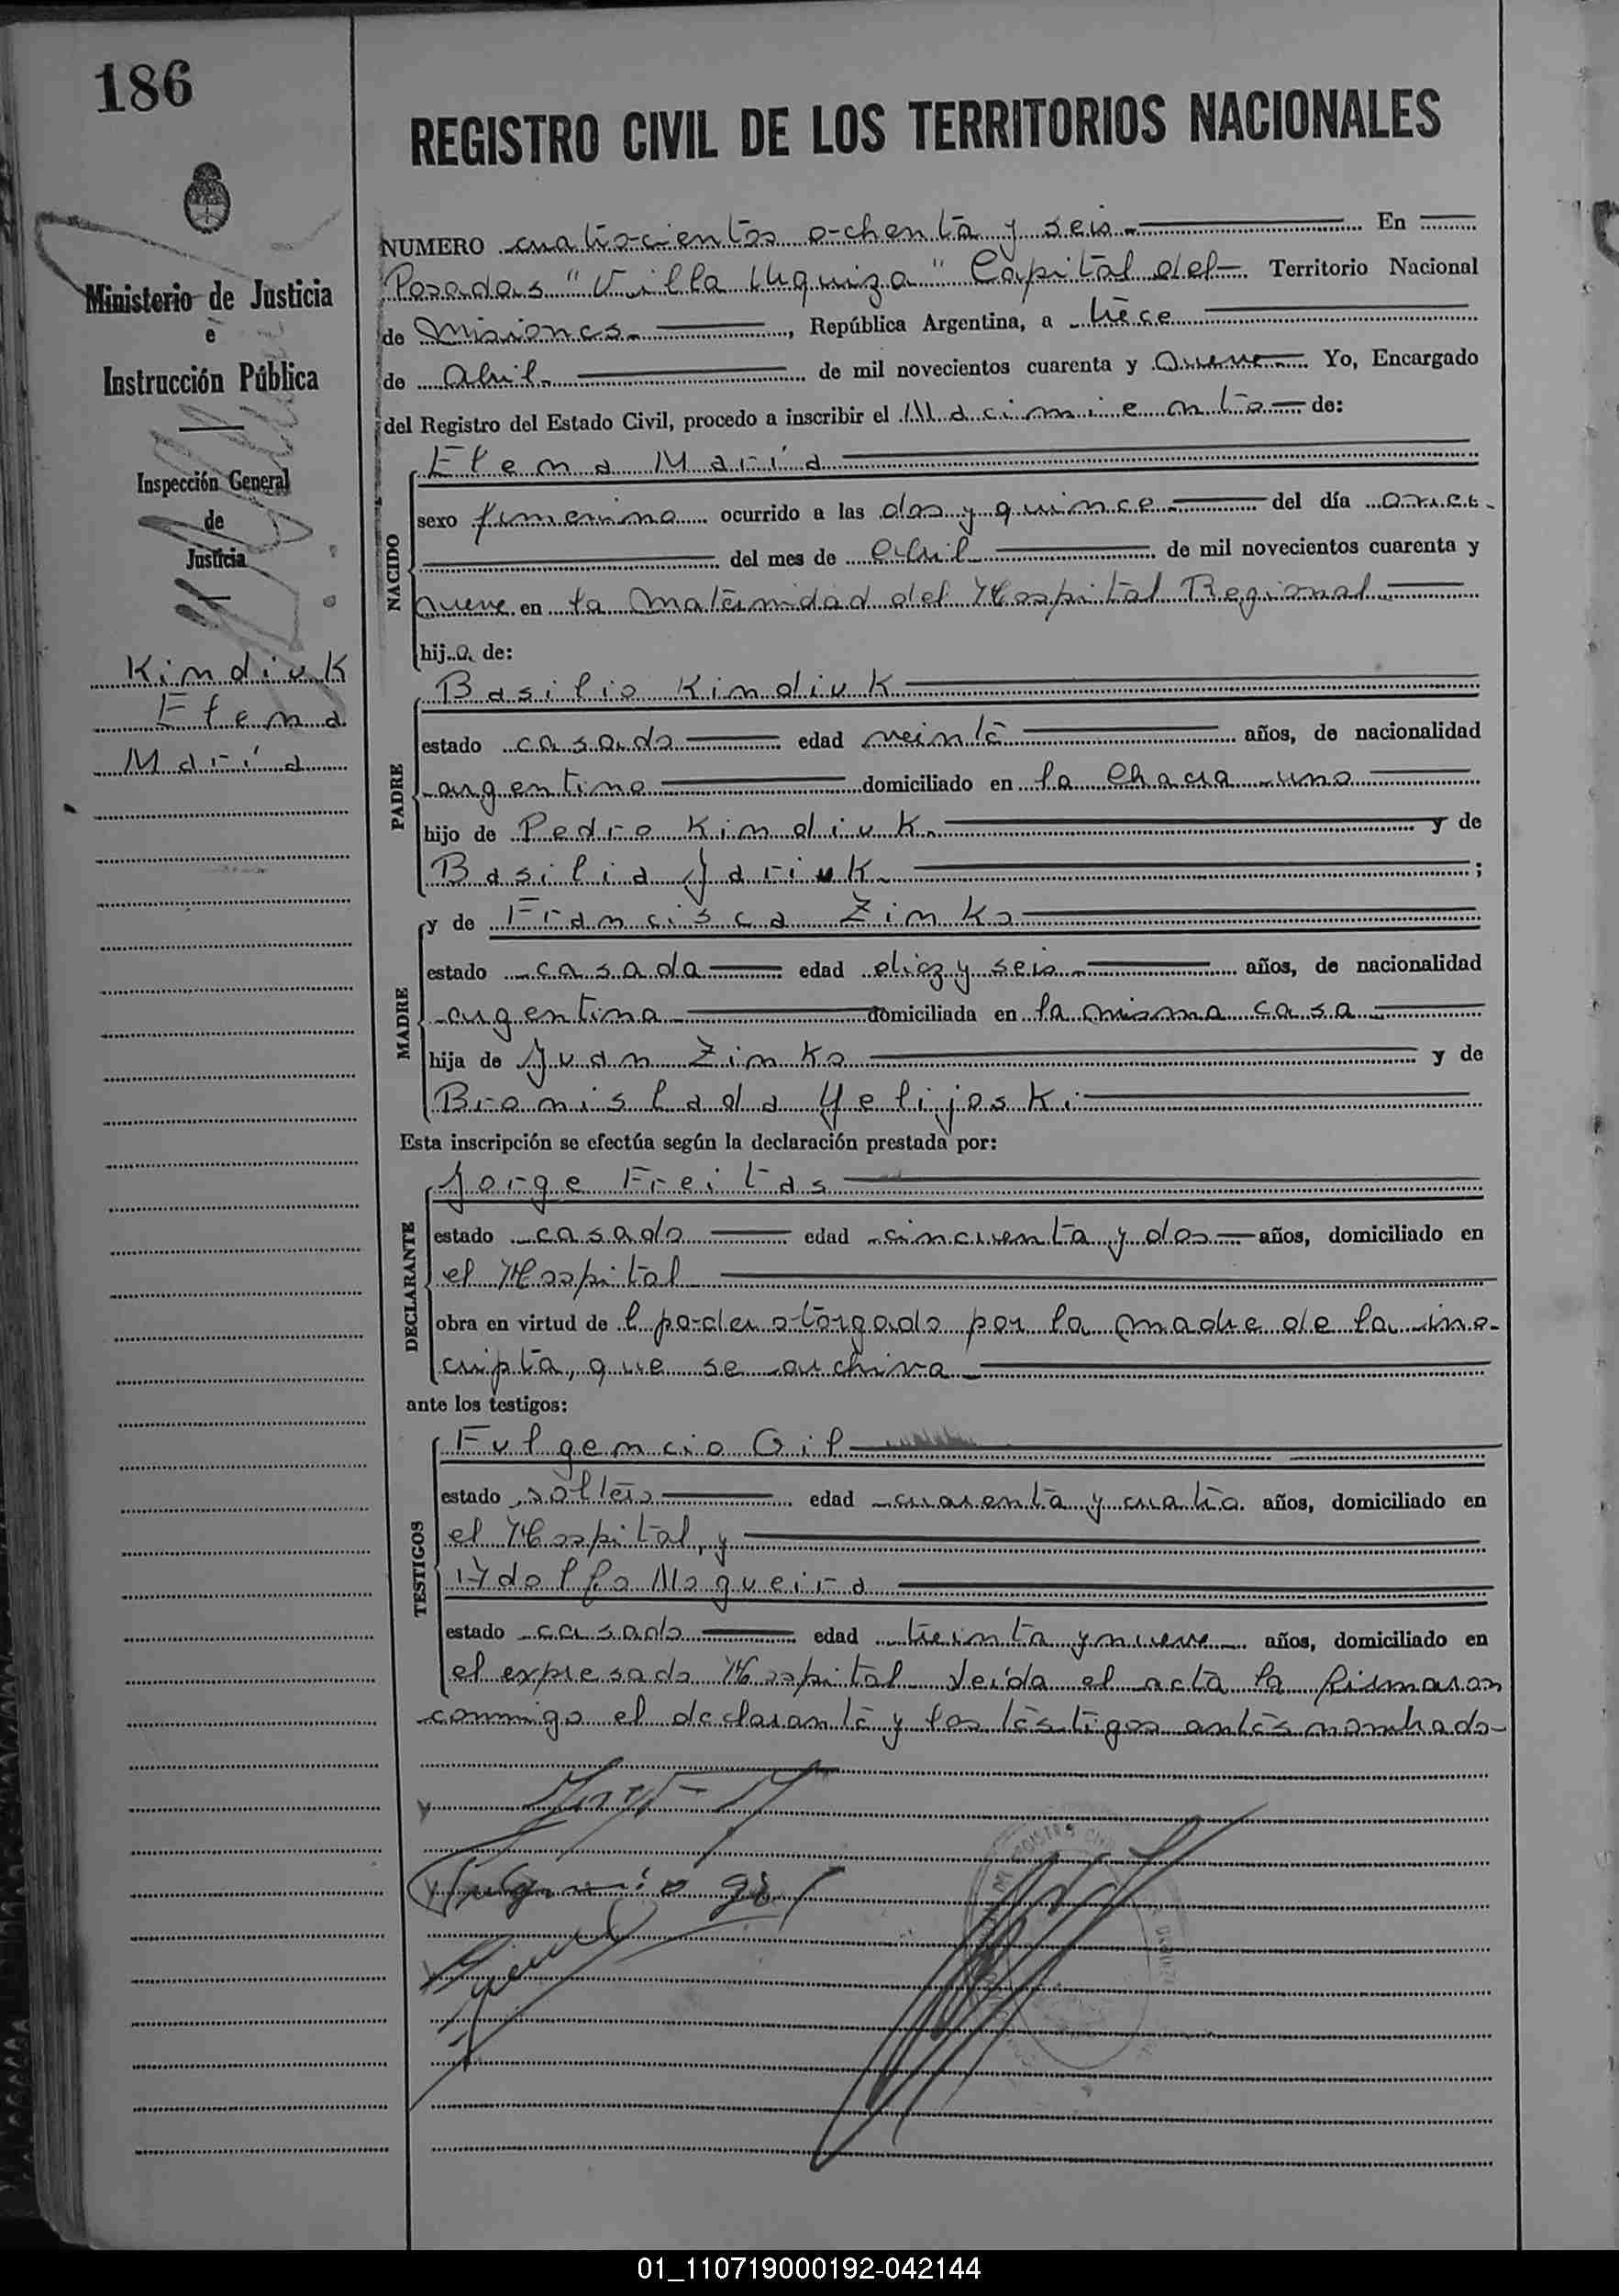 186
REGISTRO CIVIL DE LOS TERRITORIOS NACIONALES
Ministerio de Justicia
e
Instrucción Pública
Inspección General
de
Justicia
Kindiuk
Elena
María
NUMERO cuatrocientos ochenta y seis En
Posadas "Villa Urquiza" Capital del Territorio Nacional
de Misiones, República Argentina, a trece
de Abril de mil novecientos cuarenta y nueve Yo, Encargado
del Registro del Estado Civil, procedo a inscribir el Nacimiento de:
NACIDO
Elena María
sexo femenino ocurrido a las dos y quince del día once
del mes de Abril de mil novecientos cuarenta y
nueve en la Maternidad del Hospital Regional
hija de:
PADRE
Basilio Kindiuk
estado casado edad veinte años, de nacionalidad
argentino domiciliado en la Chacra uno
hijo de Pedro Kindiuk y de
Basilia Jariuk ;
MADRE
y de Francisca Zinko
estado casada edad diez y seis años, de nacionalidad
argentina domiciliada en la misma casa
hija de Juan Zinko y de
Bronislada Yelijoski
Esta inscripción se efectúa según la declaración prestada por:
DECLARANTE
Jorge Freitas
estado casado edad cincuenta y dos años, domiciliado en
el Hospital
obra en virtud del poder otorgado por la madre de la ins-
cripta, que se archiva
ante los testigos:
TESTIGOS
Fulgencio Gil
estado soltero edad cuarenta y cuatro años, domiciliado en
el Hospital, y
Adolfo Nogueira
estado casado edad treinta y nueve años, domiciliado en
el expresado Hospital leída el acta la firmaron
conmigo el declarante y los testigos antes nombrado-
Fulgencio Gil
01_110719000192-042144